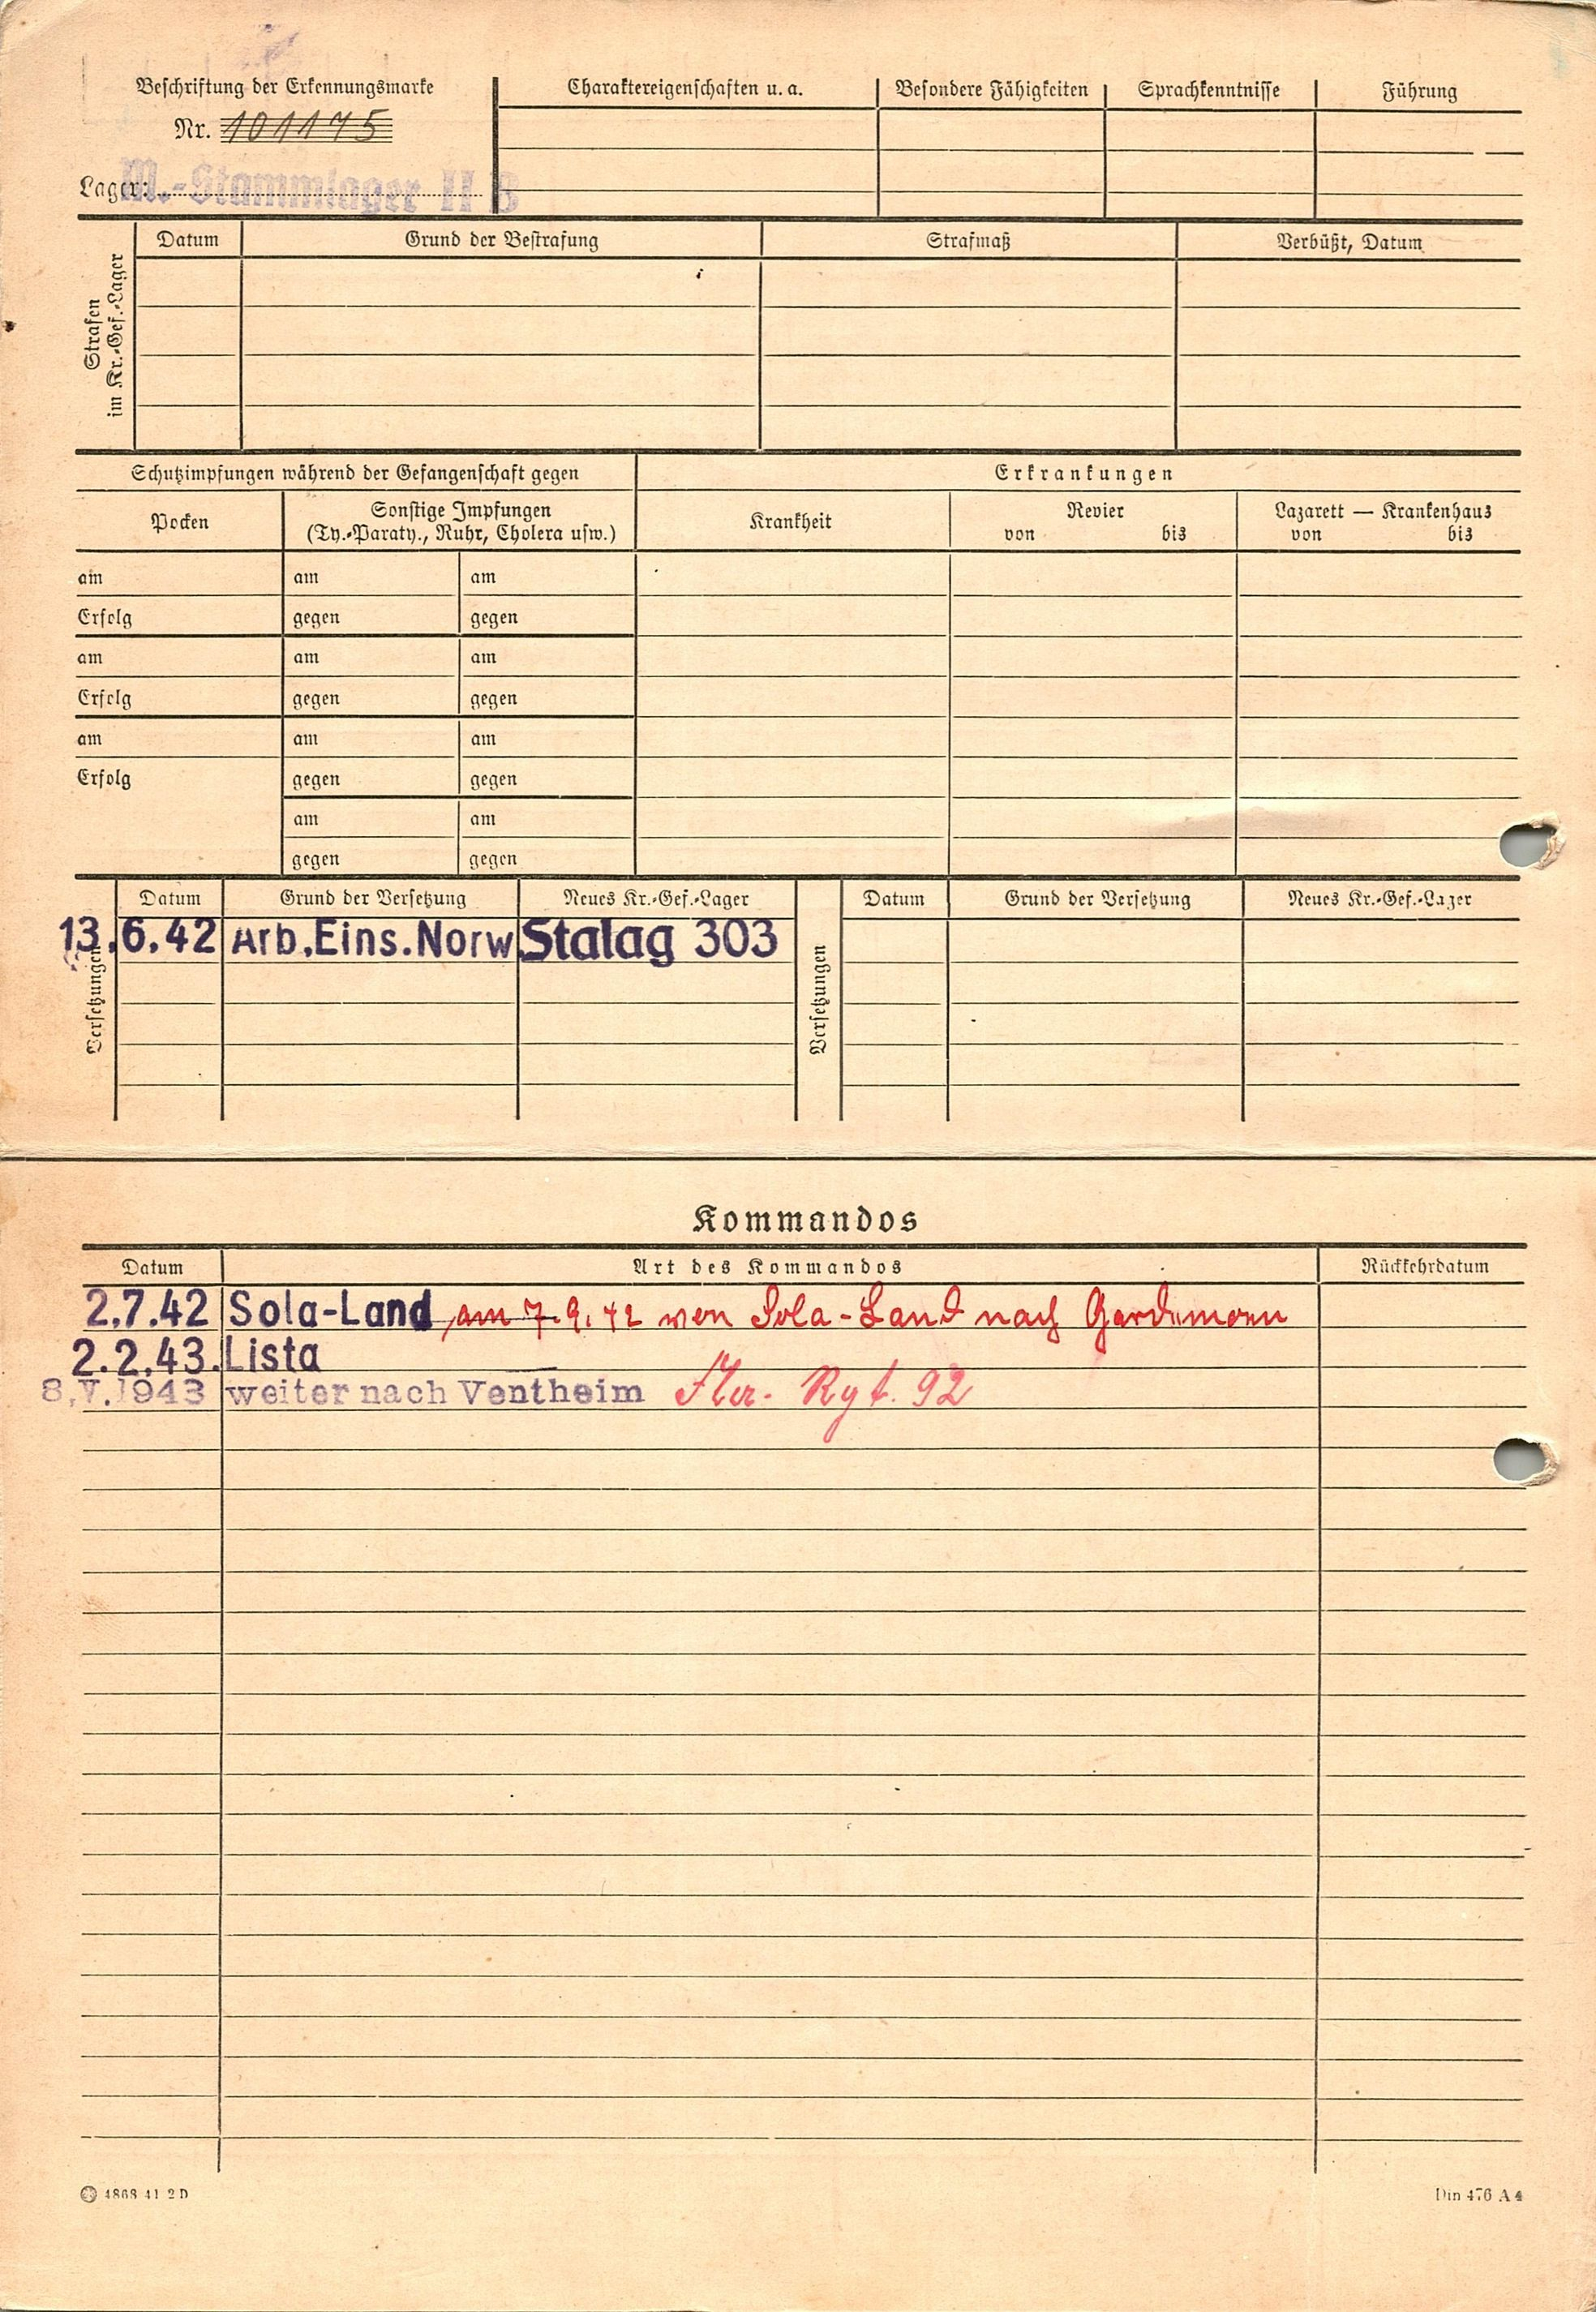 Beschriftung der Erkennungsmarke
Nr. 101175
Lager: M.-Stammlager II B
Charaktereigenschaften u. a. Besondere Fähigkeiten Sprachkenntnisse Führung
Strafen
im Kr.-Gef.-Lager
Datum Grund der Bestrafung Strafmaß Verbüßt, Datum
Schutzimpfungen während der Gefangenschaft gegen
Pocken
Sonstige Impfungen
(Ty.-Paraty., Ruhr, Cholera usw.)
am am am
Erfolg gegen gegen
am am am
Erfolg gegen gegen
am am am
Erfolg gegen gegen
am am
gegen gegen
Erkrankungen
Krankheit
Revier
von bis
Lazarett — Krankenhaus
von bis
Versetzungen
Datum Grund der Versetzung Neues Kr.-Gef.-Lager
13.6.42 Arb.Eins.Norw Stalag 303
Versetzungen
Datum Grund der Versetzung Neues Kr.-Gef.-Lager
Kommandos
Datum Art des Kommandos Rückkehrdatum
2.7.42 Sola-Land am 7.9.42 von Sola-Land nach Gardemoen
2.2.43. Lista
8.V.1943 weiter nach Ventheim Rgt. 92
4868 41 2 D
Din 476 A 4